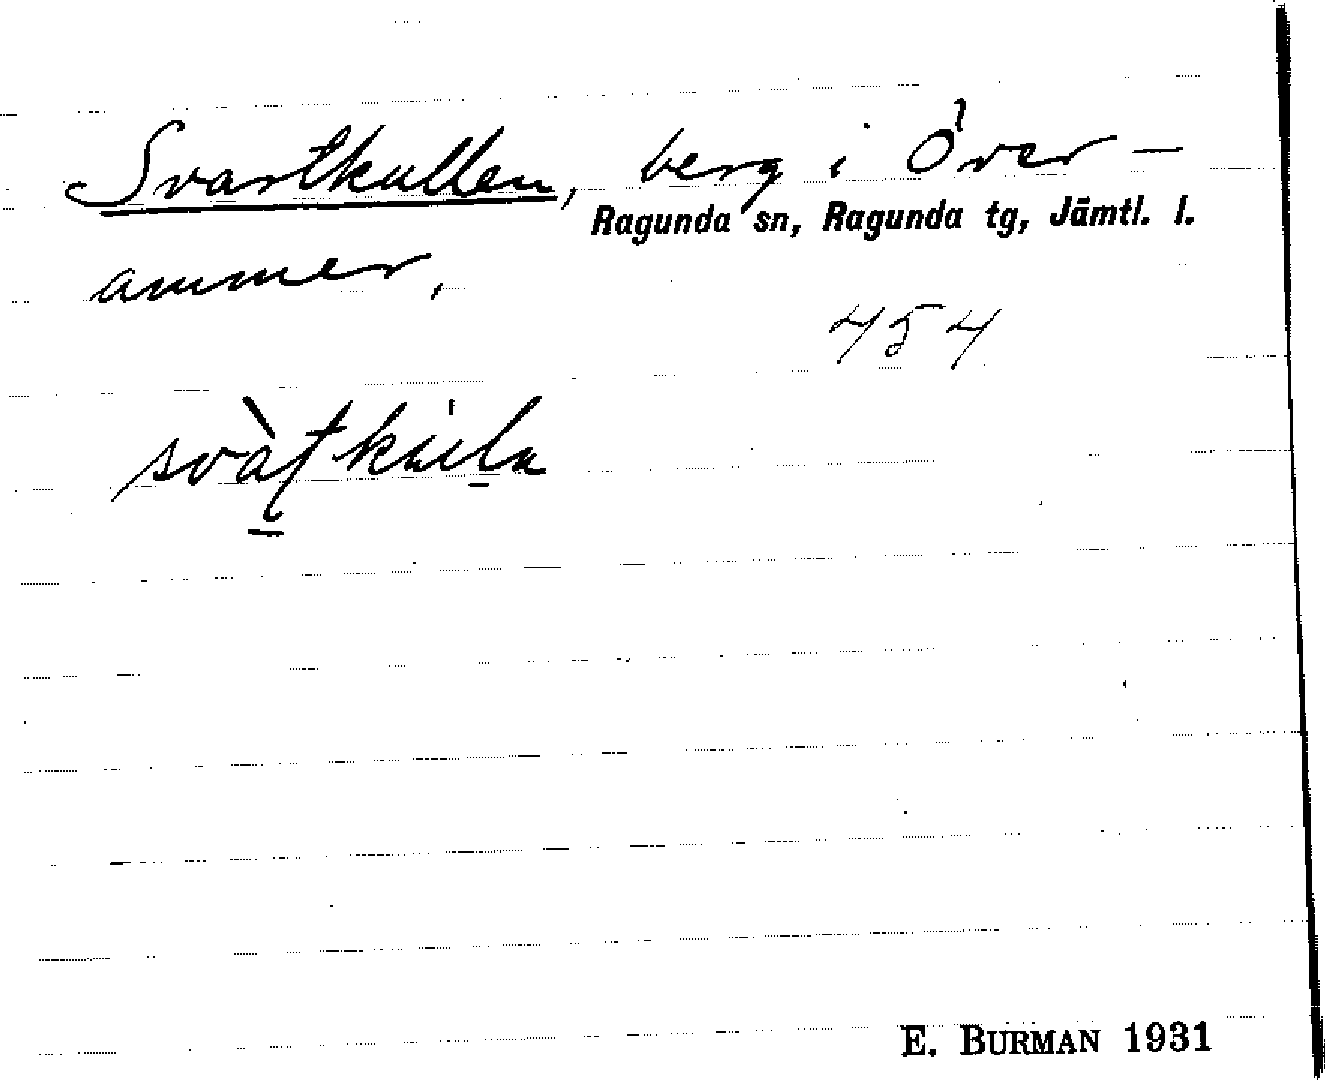 Svartkullen, berg i Över-
Ragunda sn, Ragunda tg, Jämtl. l.
ammer,
454
E. BURMAN 1931